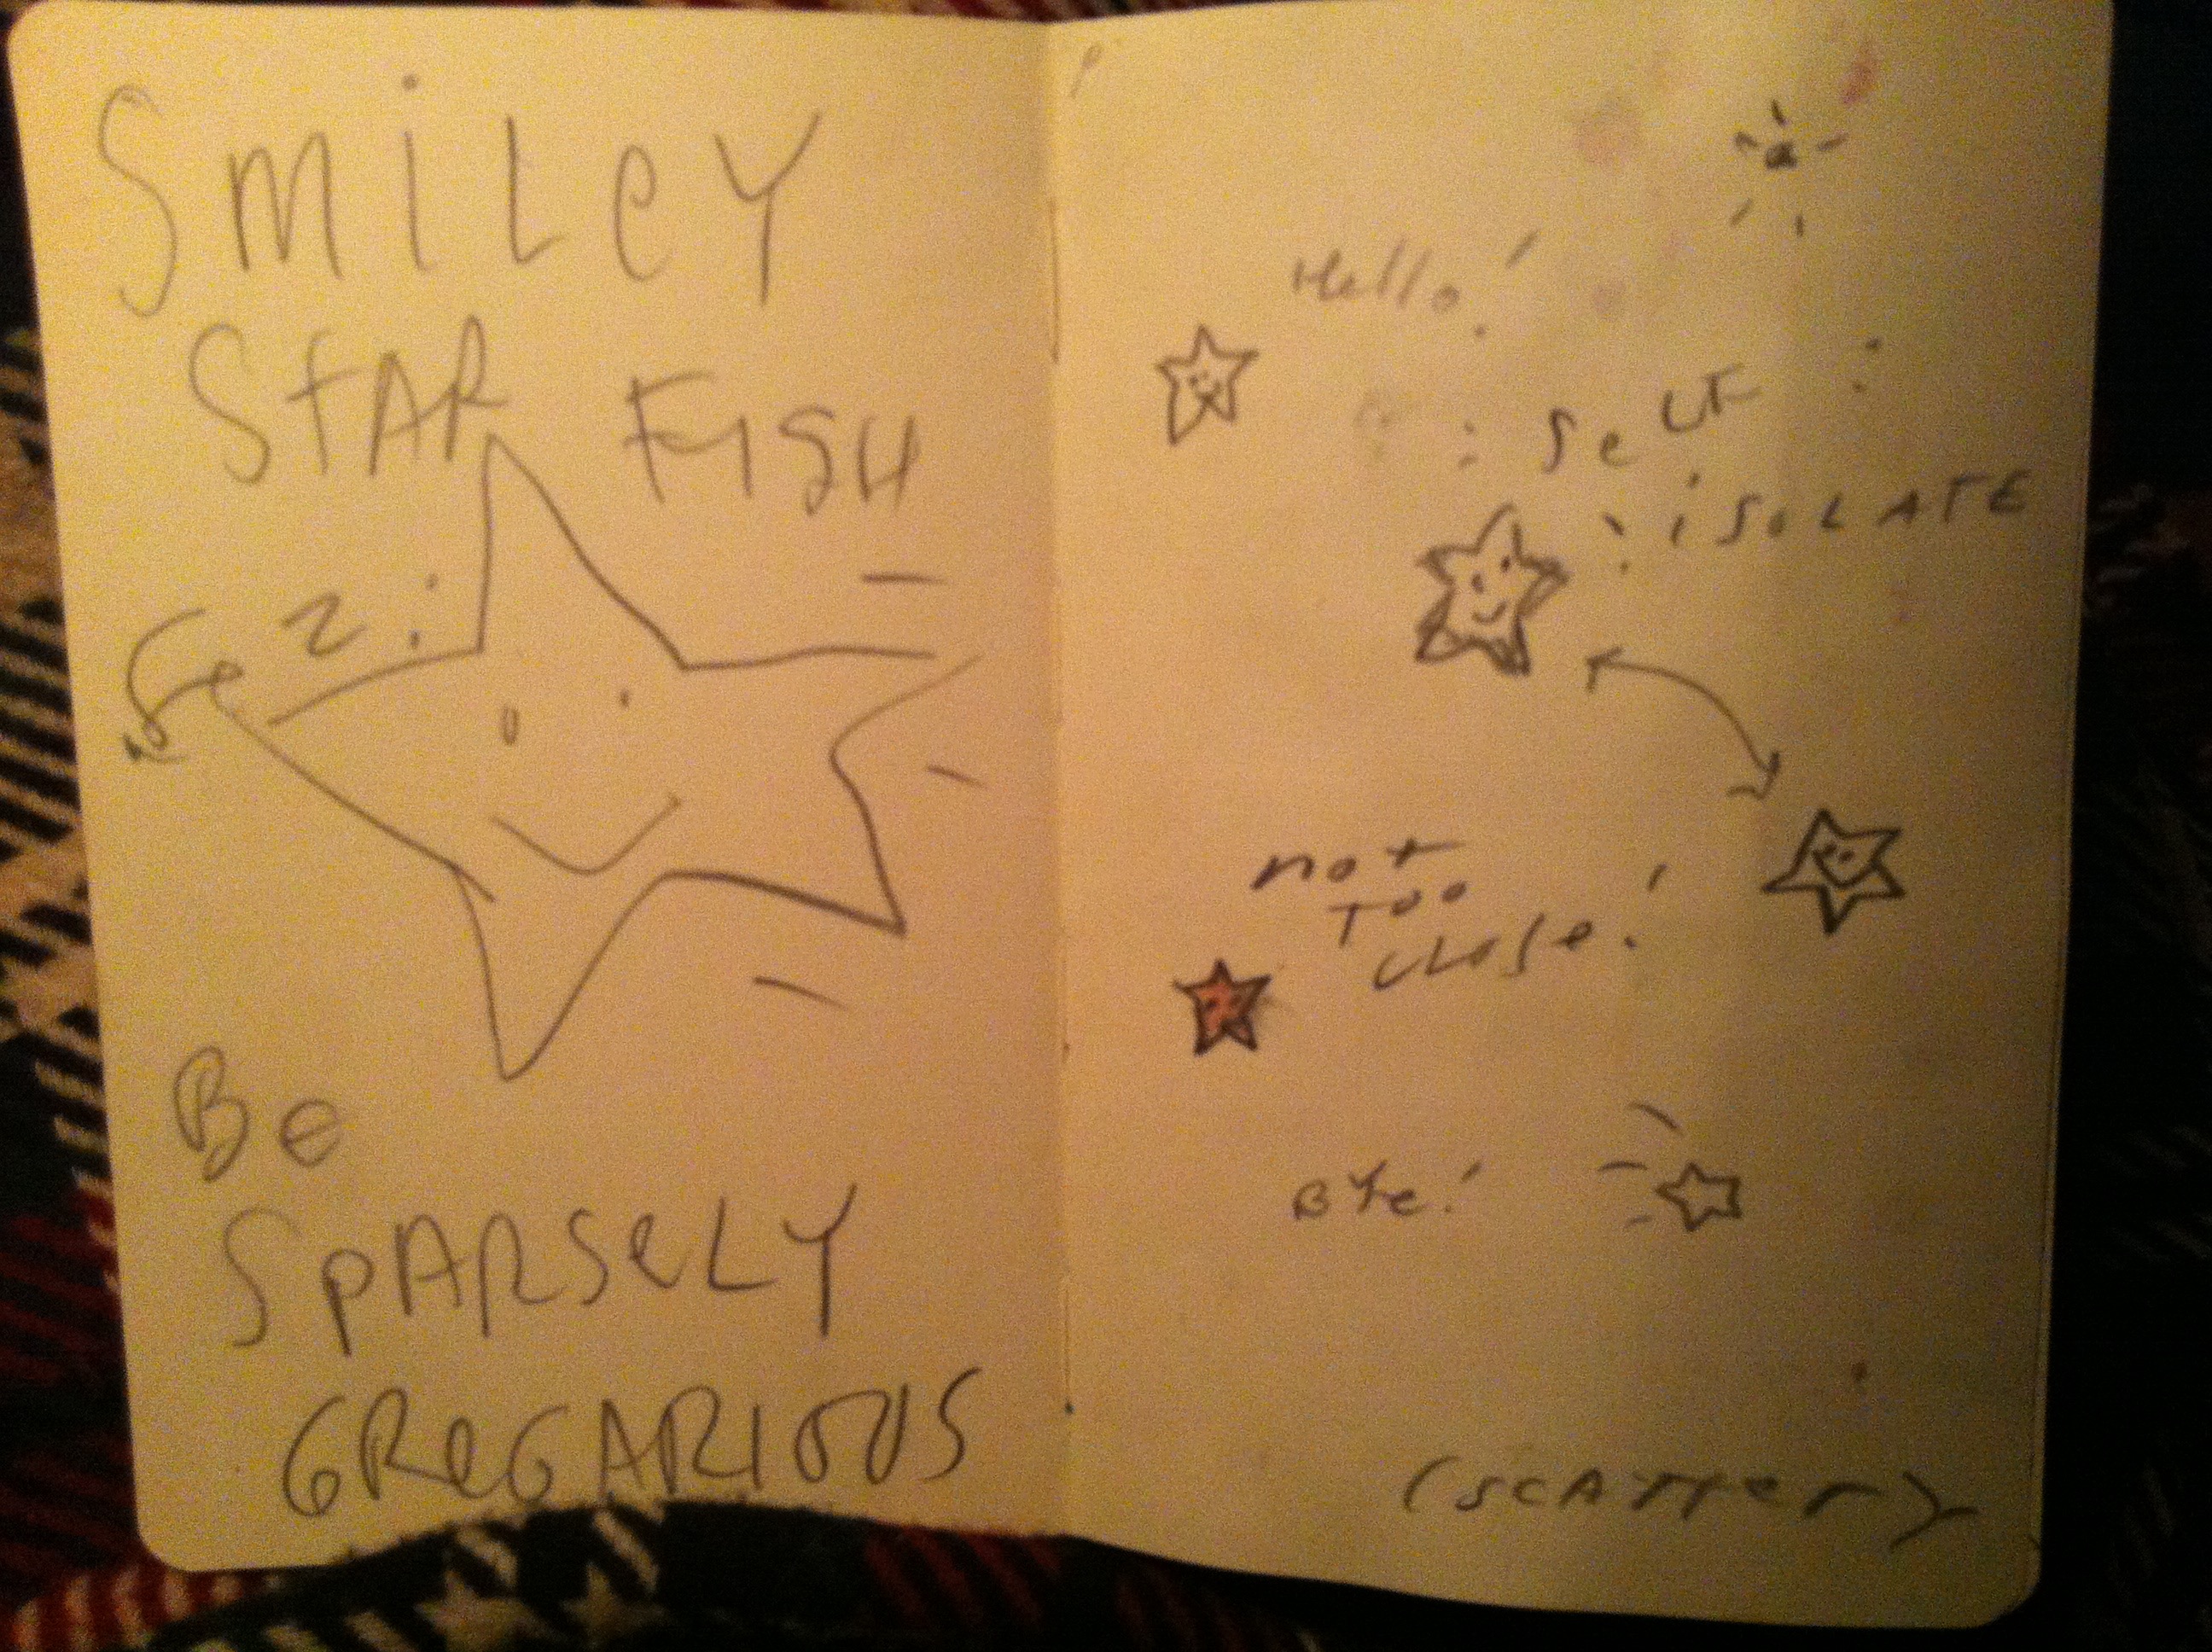 SMiLeY
STAR FISH
Sez:
Be
SPARSeLY
GReGARIOUS
Hello!
: SeLF :
: iSoLATE
not
Too
close!
BYe!
(scATTer)